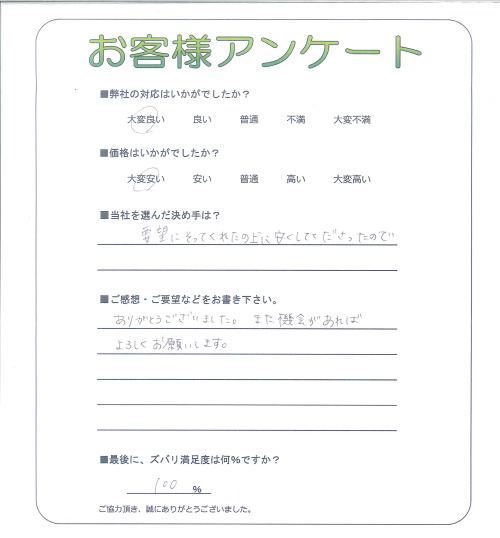 お客様アンケート
■弊社の対応はいかがでしたか？
大変良い 良い 普通 不満 大変不満
■価格はいかがでしたか？
大変安い 安い 普通 高い 大変高い
■当社を選んだ決め手は？
要望にそってくれたの上に安くしてくださったので
■ご感想・ご要望などをお書き下さい。
ありがとうございました。また機会があれば
よろしくお願いします。
■最後に、ズバリ満足度は何％ですか？
100 ％
ご協力頂き、誠にありがとうございました。